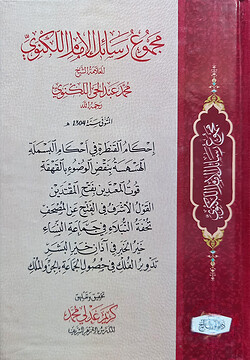 مجموع رسائل الإمام اللكنوي
للعلامة الشيخ
محمد عبد الحي اللكنوي
رحمه الله
المتوفى سنة 1304 هـ
إحكام القنطرة في أحكام البسملة
الهسهسة بنقض الوضوء بالقهقهة
قوت المغتذين بفتح المقتدين
القول الأشرف في الفتح عن المصحف
تحفة النبلاء في جماعة النساء
خير الخبر في أذان خير البشر
تدوير الفلك في حصول الجماعة بالجن والملك
تحقيق وتعليق
محمد
مجموع رسائل الإمام اللكنوي